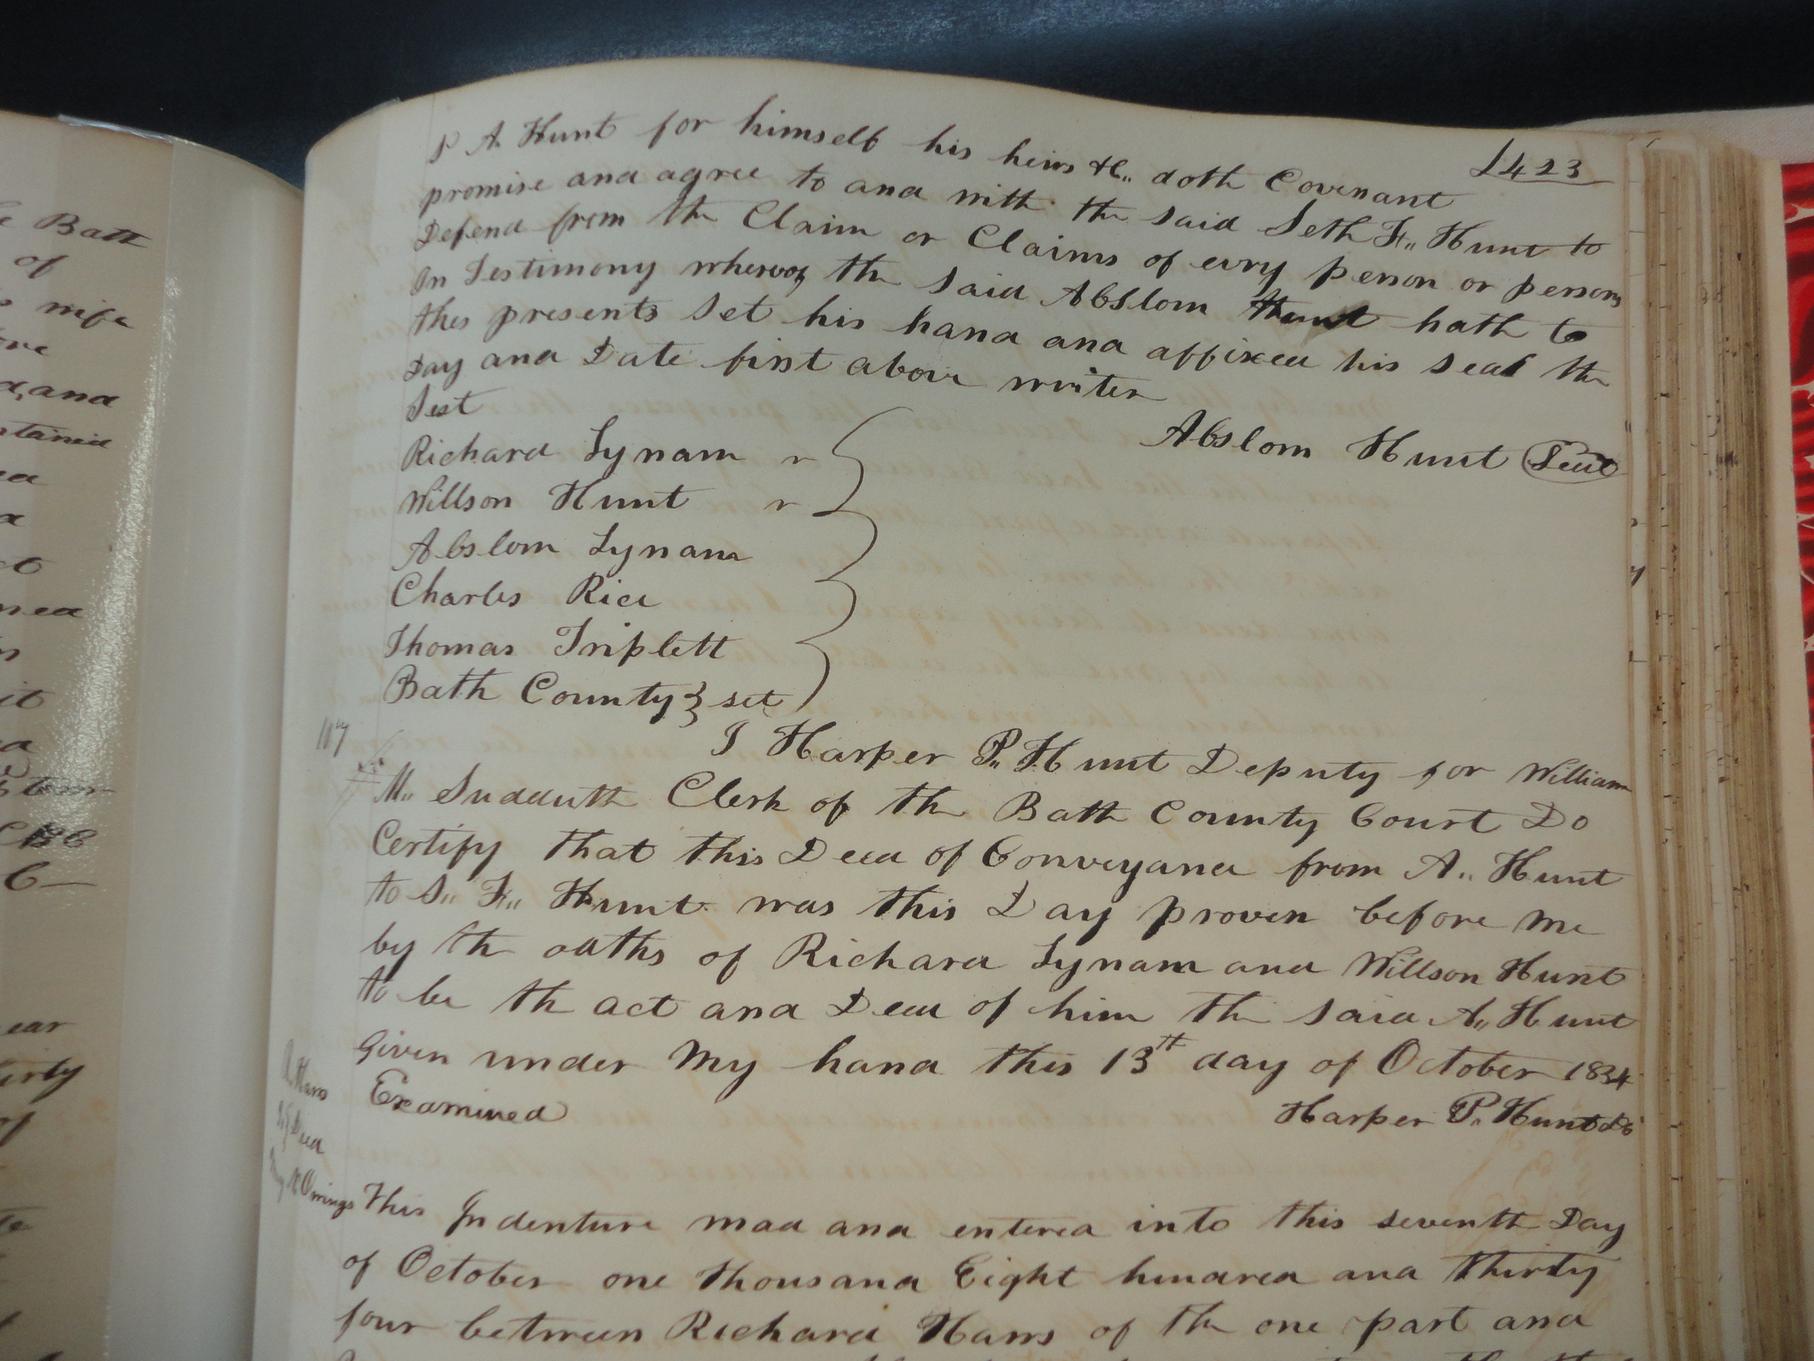 Bath
of
wife
and
tained
it
ear
irty
of
423
A. Hunt for himself his heirs &C,, doth Covenant
promise and agree to and with the said Seth F,, Hunt to
Defend from the Claim or Claims of evry person or persons
In Testimony whereof the said Abslom Hunt hath to
thes presents set his hand and affixed his seal the
Day and Date first above writen
Test
Abslom Hunt Seal
Richard Lynam
Willson Hunt
Abslom Lynam
Charles Rice
Thomas Triplett
Bath County } set
107
I Harper P,, Hunt Deputy for William
M,, Sudduth Clerk of the Bath County Court Do
Certify that this Deed of Conveyance from A,, Hunt
to S,, F,, Hunt was this Day proven before me
by the oaths of Richard Lynam and Willson Hunt
to be the act and Deed of him the said A,, Hunt
Given under my hand this 13th day of October 1834
Examined
Harper P,, Hunt DC
Deed
Owings
This Indenture mad and entered into this seventh Day
of October one thousand Eight hundred and thirty
four between Richard Hans of the one part and